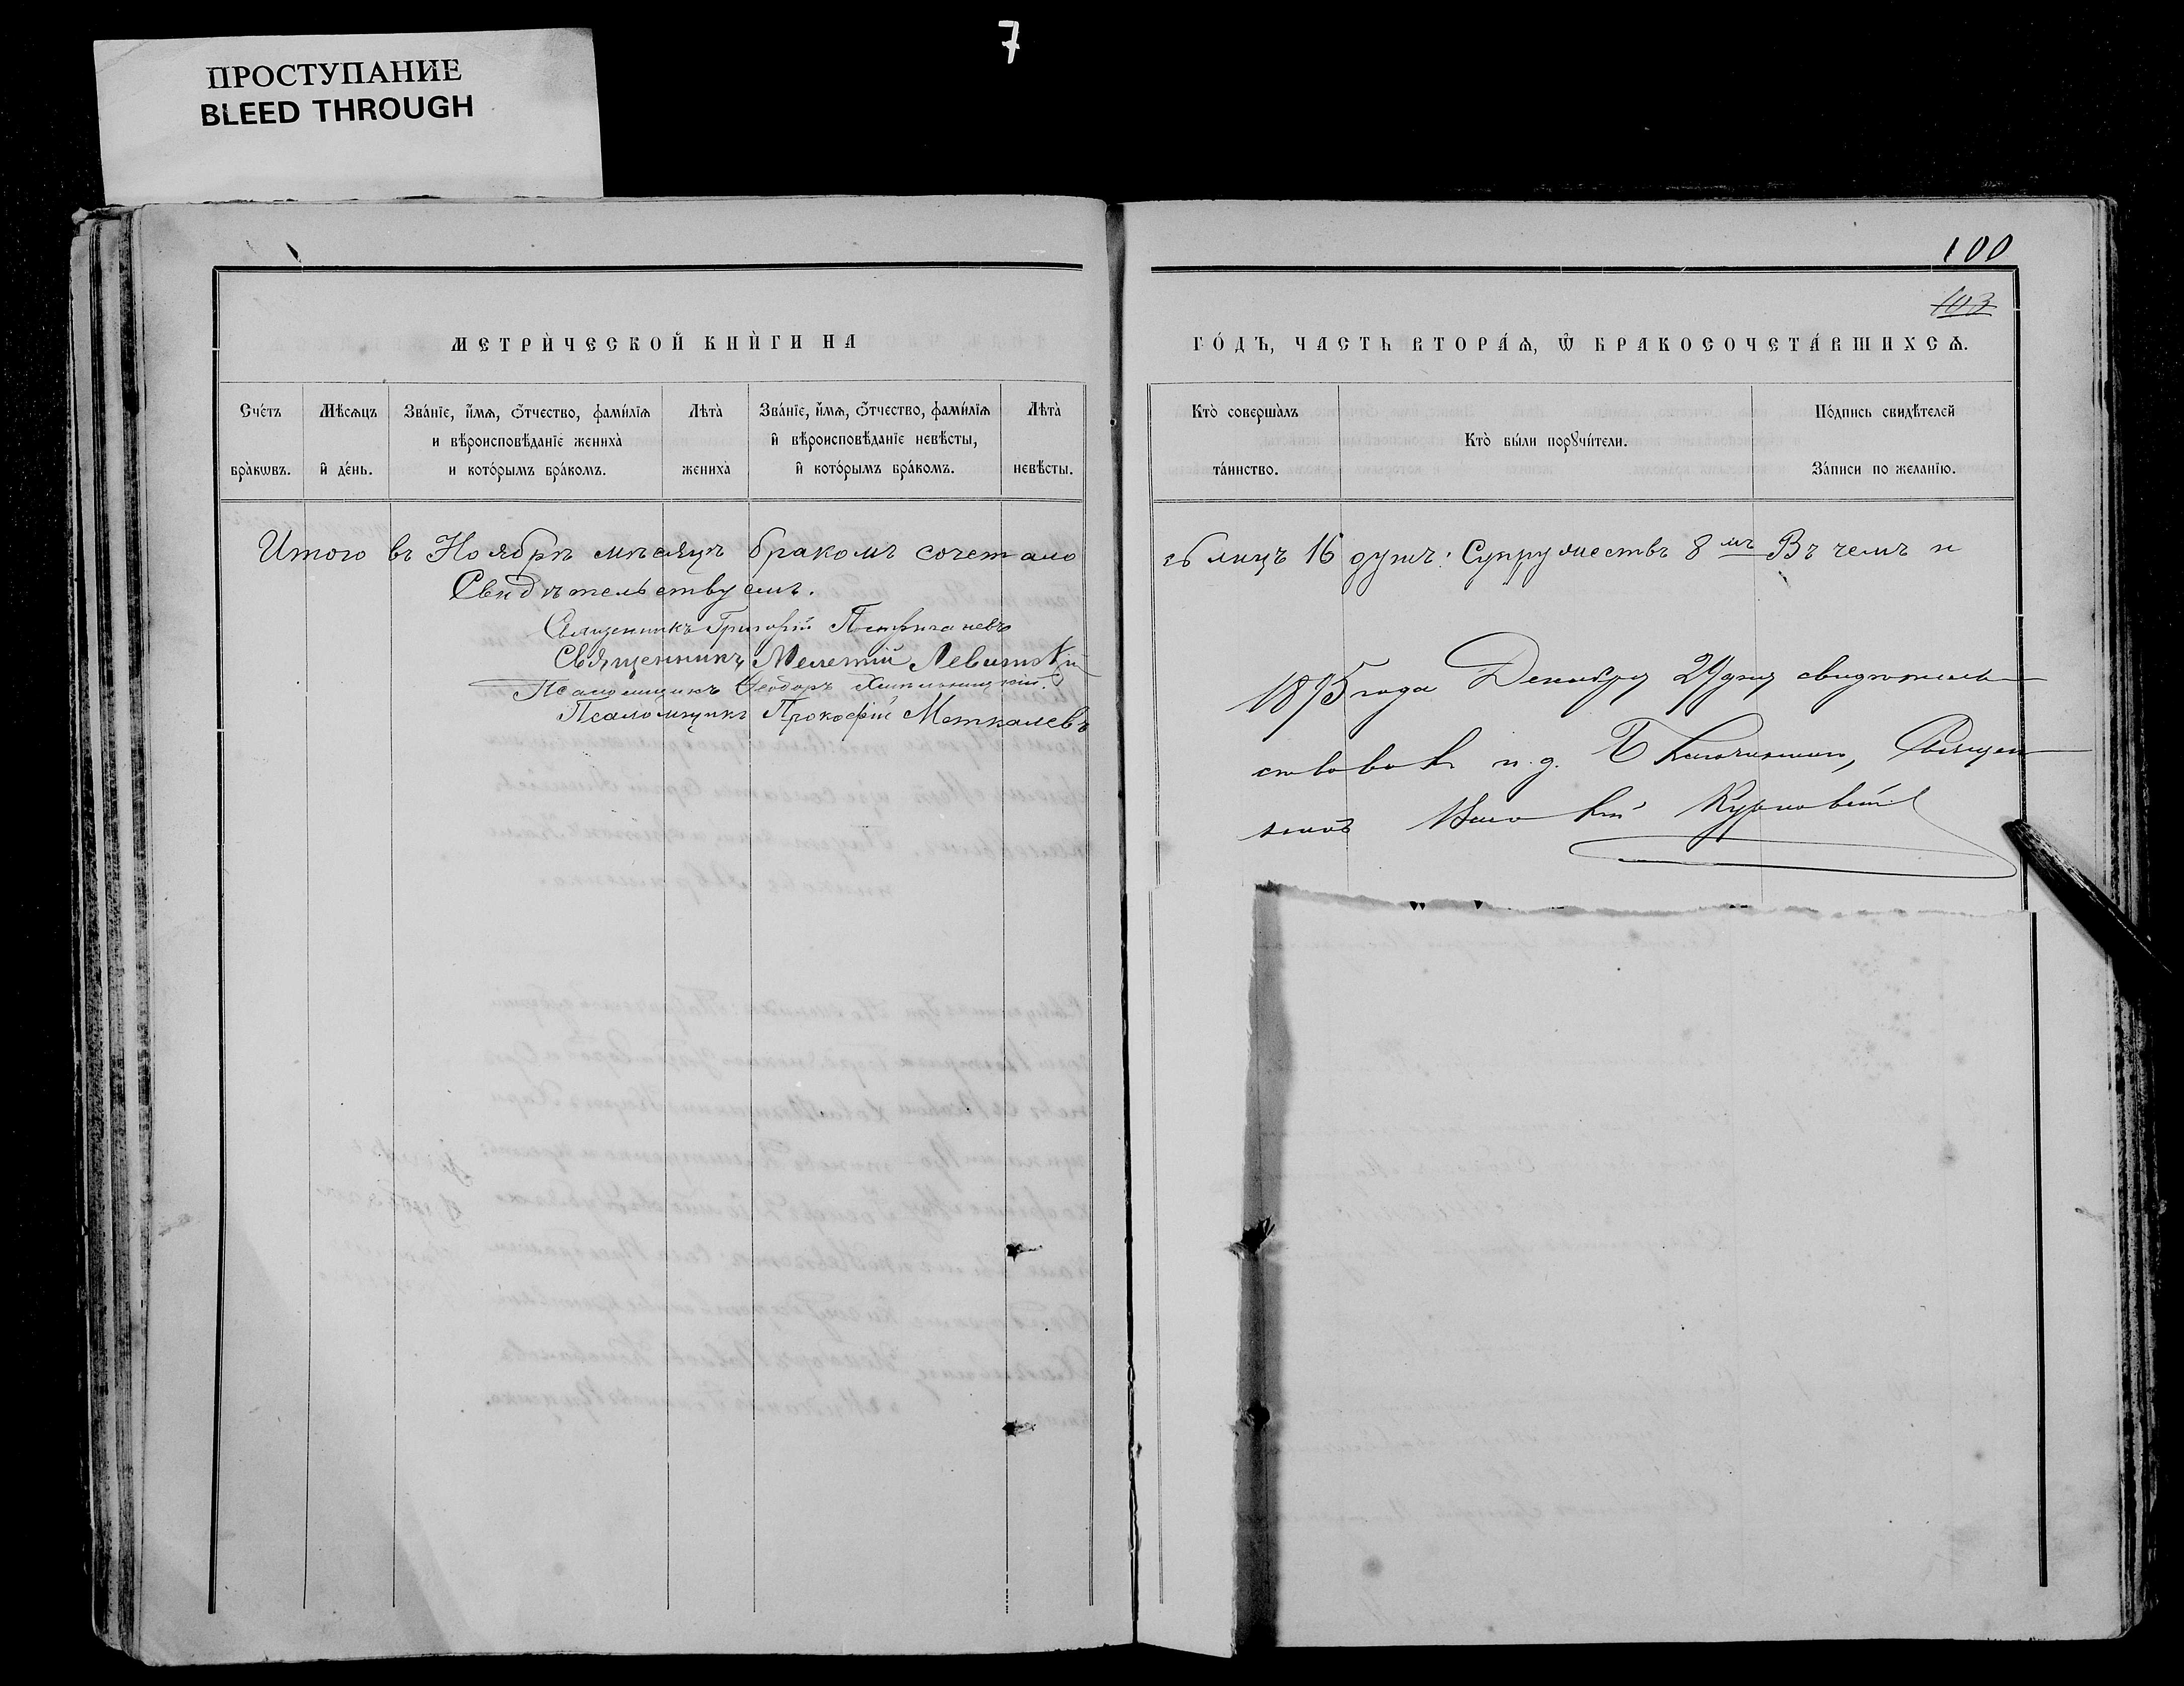 7
ПРОСТУПАНИЕ
BLEED THROUGH
100
103
МЕТРИ́ЧЕСКОЙ КНИ́ГИ НА
ГО́ДЪ, ЧАСТЬ ВТОРА́Ѧ, Ѡ҆ БРАКОСОЧЕТА́ВШИХСѦ.
Сче́тъ бра̀кѡвъ.
Мѣ́сѧцъ и҆ де́нь.
Зва́нїе, и҆́мѧ, ѻ҆́тчество, фами́лїѧ и вѣроисповѣ́данїе жениха̀ и кото́рымъ бра́комъ.
Лѣта̀ жениха̀
Зва́нїе, и҆́мѧ, ѻ҆́тчество, фами́лїѧ и҆ вѣроисповѣ́данїе невѣ́сты, и҆ кото́рымъ бра́комъ.
Лѣта̀ невѣ́сты.
Кто̀ соверша̀лъ та́инство.
Кто̀ бы́ли порꙋчи́тели.
По́дпись свидѣ́телей За́писи по желанїю.
Итого въ Ноябрѣ мѣсяцѣ бракомъ сочетало
сь лицъ 16 душъ: Супружествъ 8 мь Въ чемъ и
Свидѣтельствуемъ.
Священникъ Григорій
Священникъ Мелетій Левитскій
Псаломщикъ Ѳеодоръ
Псаломщикъ Прокофій Меткалевъ
1895 года Декабря дня свидѣтель
ствовалъ и. д. Благочиннаго, Священ
никъ